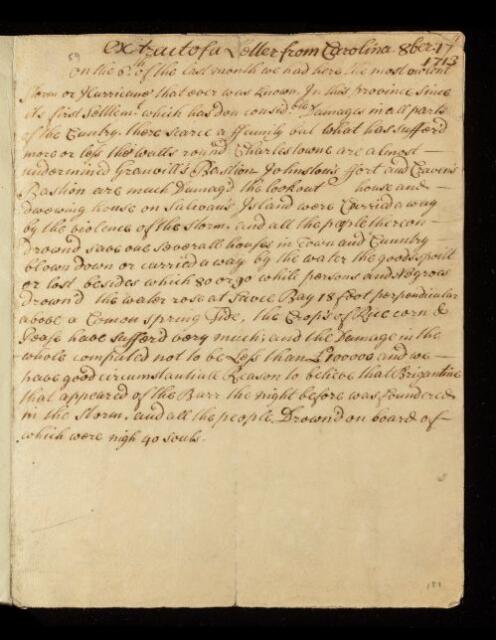 Extract of a Letter from Carolina 8ber 17
1713
59
on the 5th of the last month we had here the most violent
Storm or Hurricane that ever was known In this province Since
its first Settlemt which has don considble Damages in all parts
of the Cuntry, there scarce a ffamily but what has sufferd
more or less the walls round Charlestowne are almost
undermined Granvill's Bastion Johnstons ffort and Craven's
Bastion are much Damag'd the lookout house and
dweving house on Salivan's Island were Carried away
by the violence of the storm, and all the people thereon
Drownd save one severall houses in Town and Cuntry
blown down or carried away by the water the goods spoilt
or lost besides which 80 or 90 white persons and Negroes
Drown'd the water rose at Sewee Bay 18 foot perpendicular
above a Comon Spring Tide, the Crops of Rice corn &
Pease have sufferd very much, and the Damage in the
whole computed not to be Less than £100000 and we
have good circumstantiall Reason to believe that Brigantine
that appeared of the Barr the night before was foundered
in the Storm, and all the people Drownd on board of
which were nigh 40 souls.